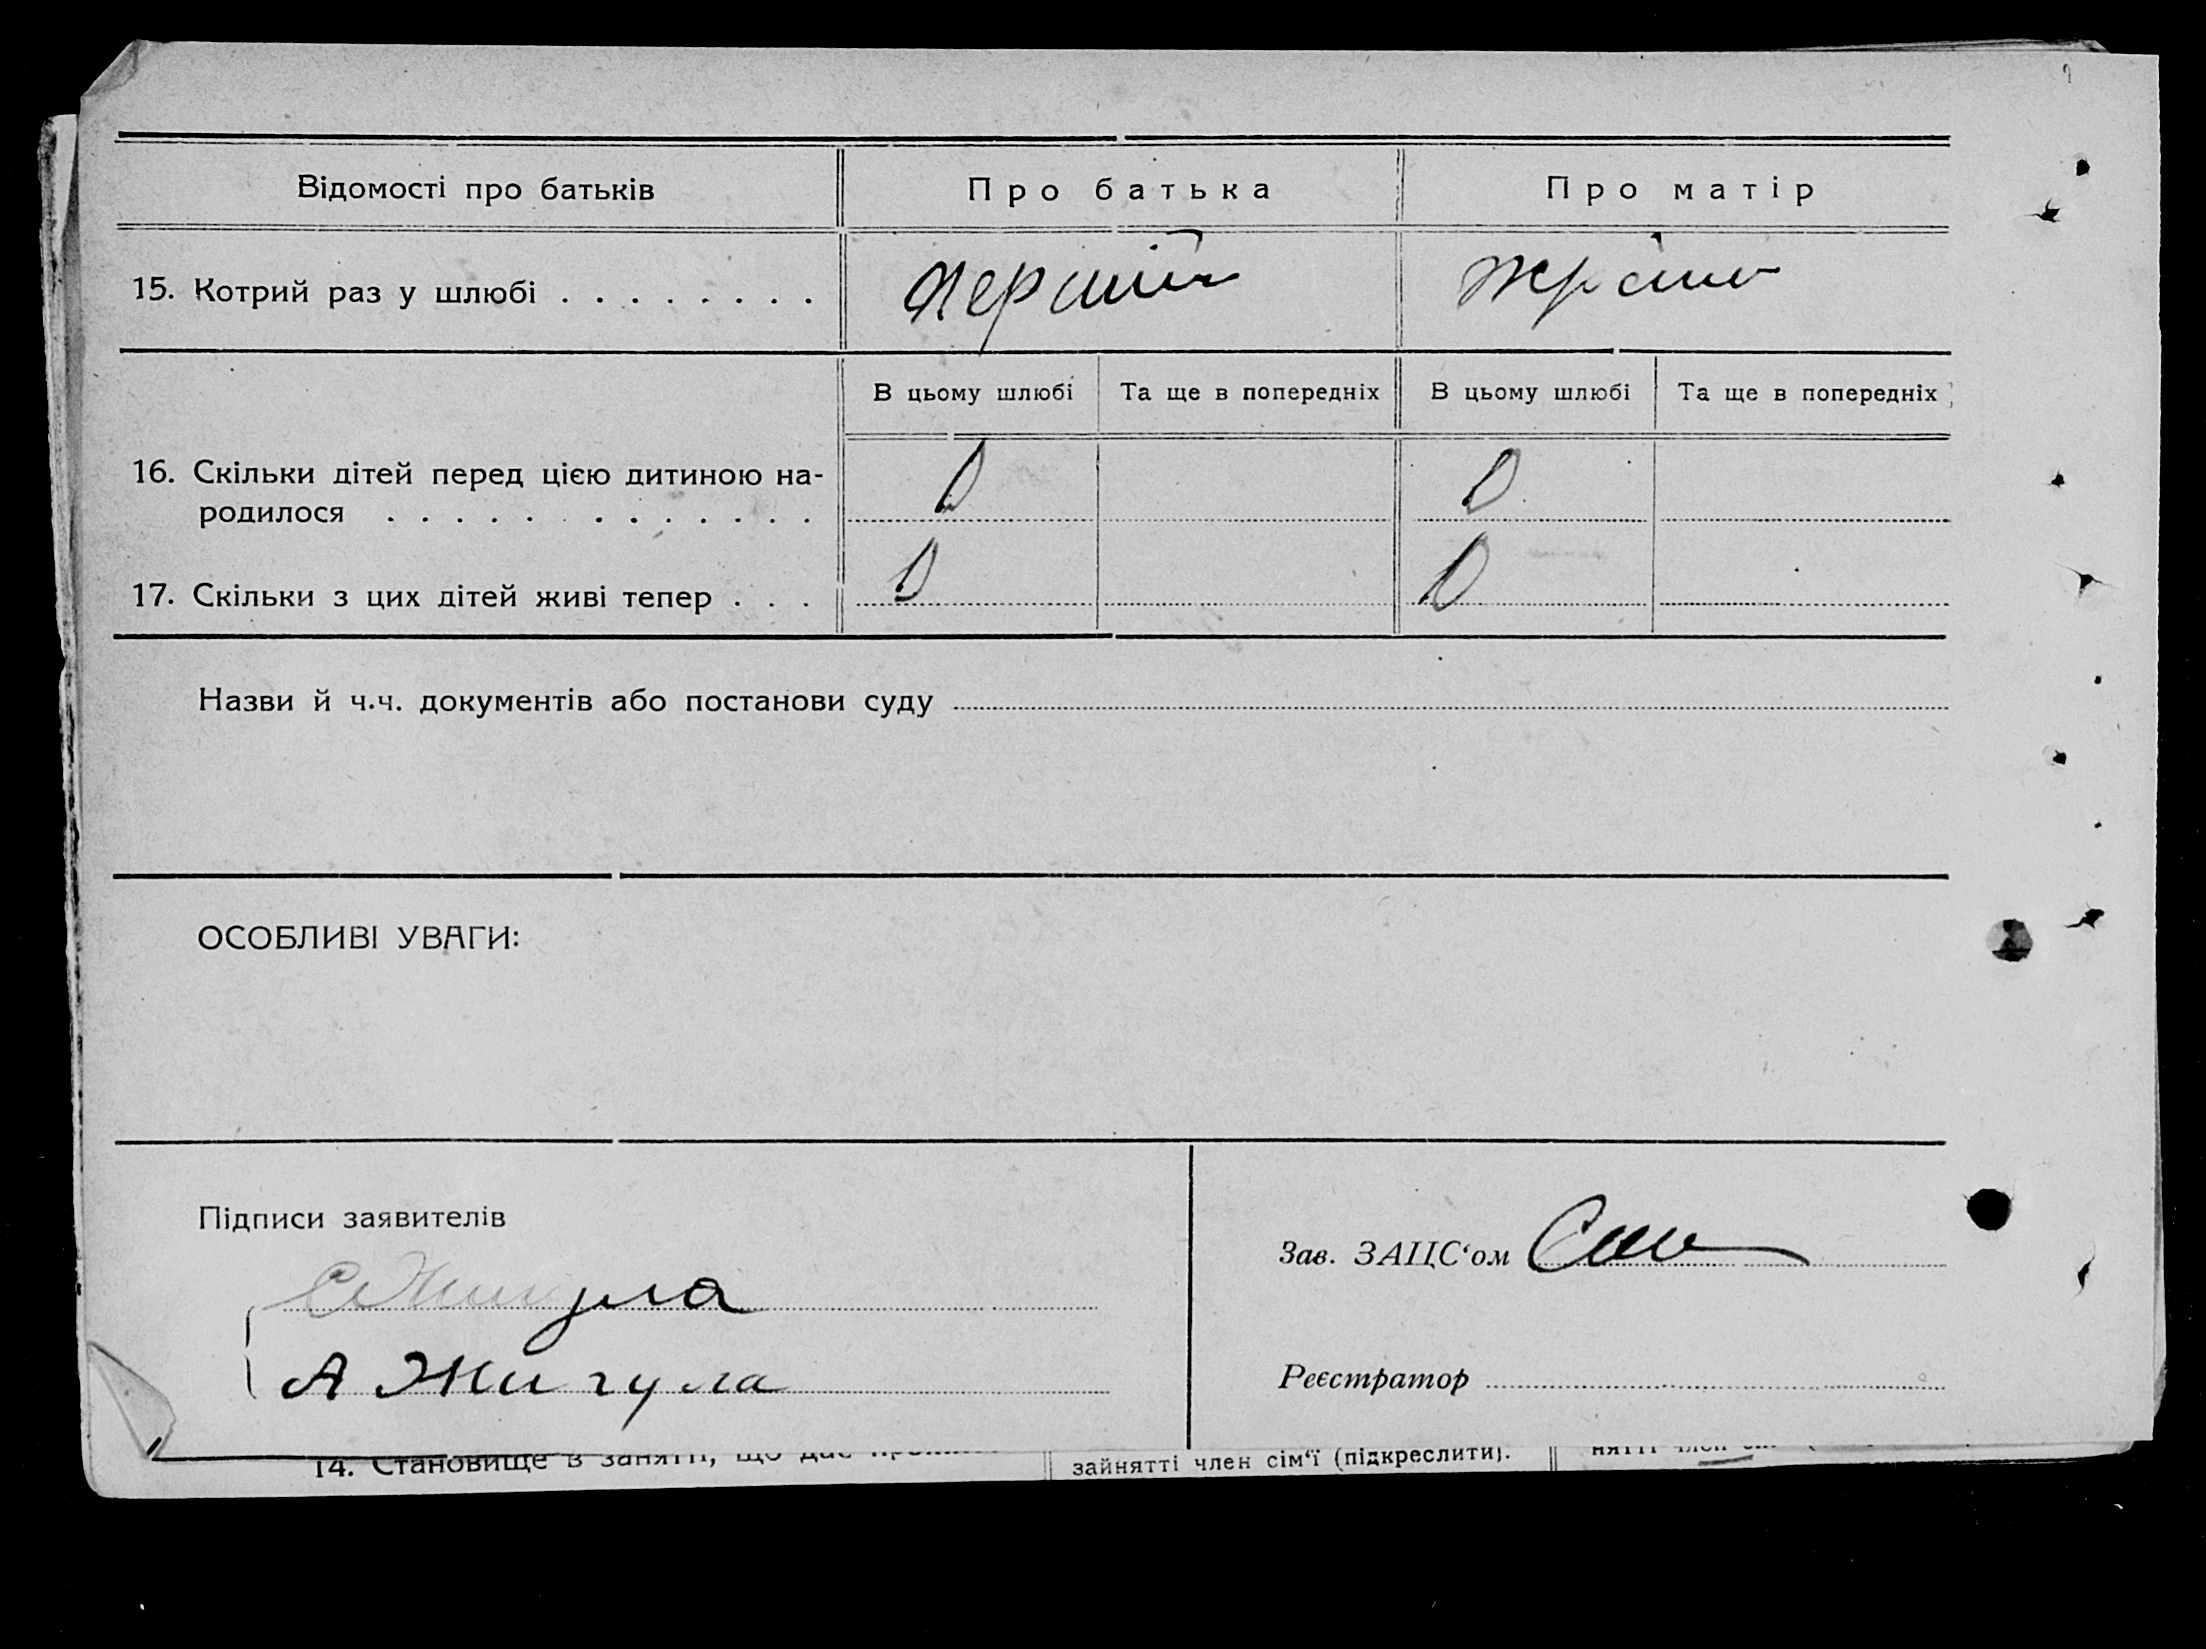 Відомості про батьків Про батька Про матір
15. Котрий раз у шлюбі . . . . . . . . перший
В цьому шлюбі Та ще в попередніх В цьому шлюбі Та ще в попередніх
16. Скільки дітей перед цією дитиною на-
родилося . . . . . . . . . . . . . 0 0
17. Скільки з цих дітей живі тепер . . . 0 0
Назви й ч.ч. документів або постанови суду
ОСОБЛИВІ УВАГИ:
Підписи заявителів
Зав. ЗАЦС‘ом
Жигула
А Жигула
Реєстратор
14. Становище в занятті, що дає
зайнятті член сім‘ї (підкреслити).